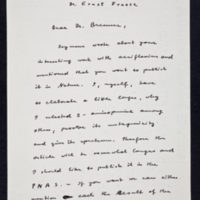 Dr Ernst Freese
Dear Dr. Brenner,
Seymour wrote about your
interesting work with acriflavine and
mentioned that you want to publish
it in Nature. I, myself, have
to elaborate a little longer, why
I selected 2-aminopurine among
others, prove its mutagenicity
and give its spectrum. Therefore the
article will be somewhat longer and
I should like to publish it in the
PNAS. - If you want we can either
mention each the result of the